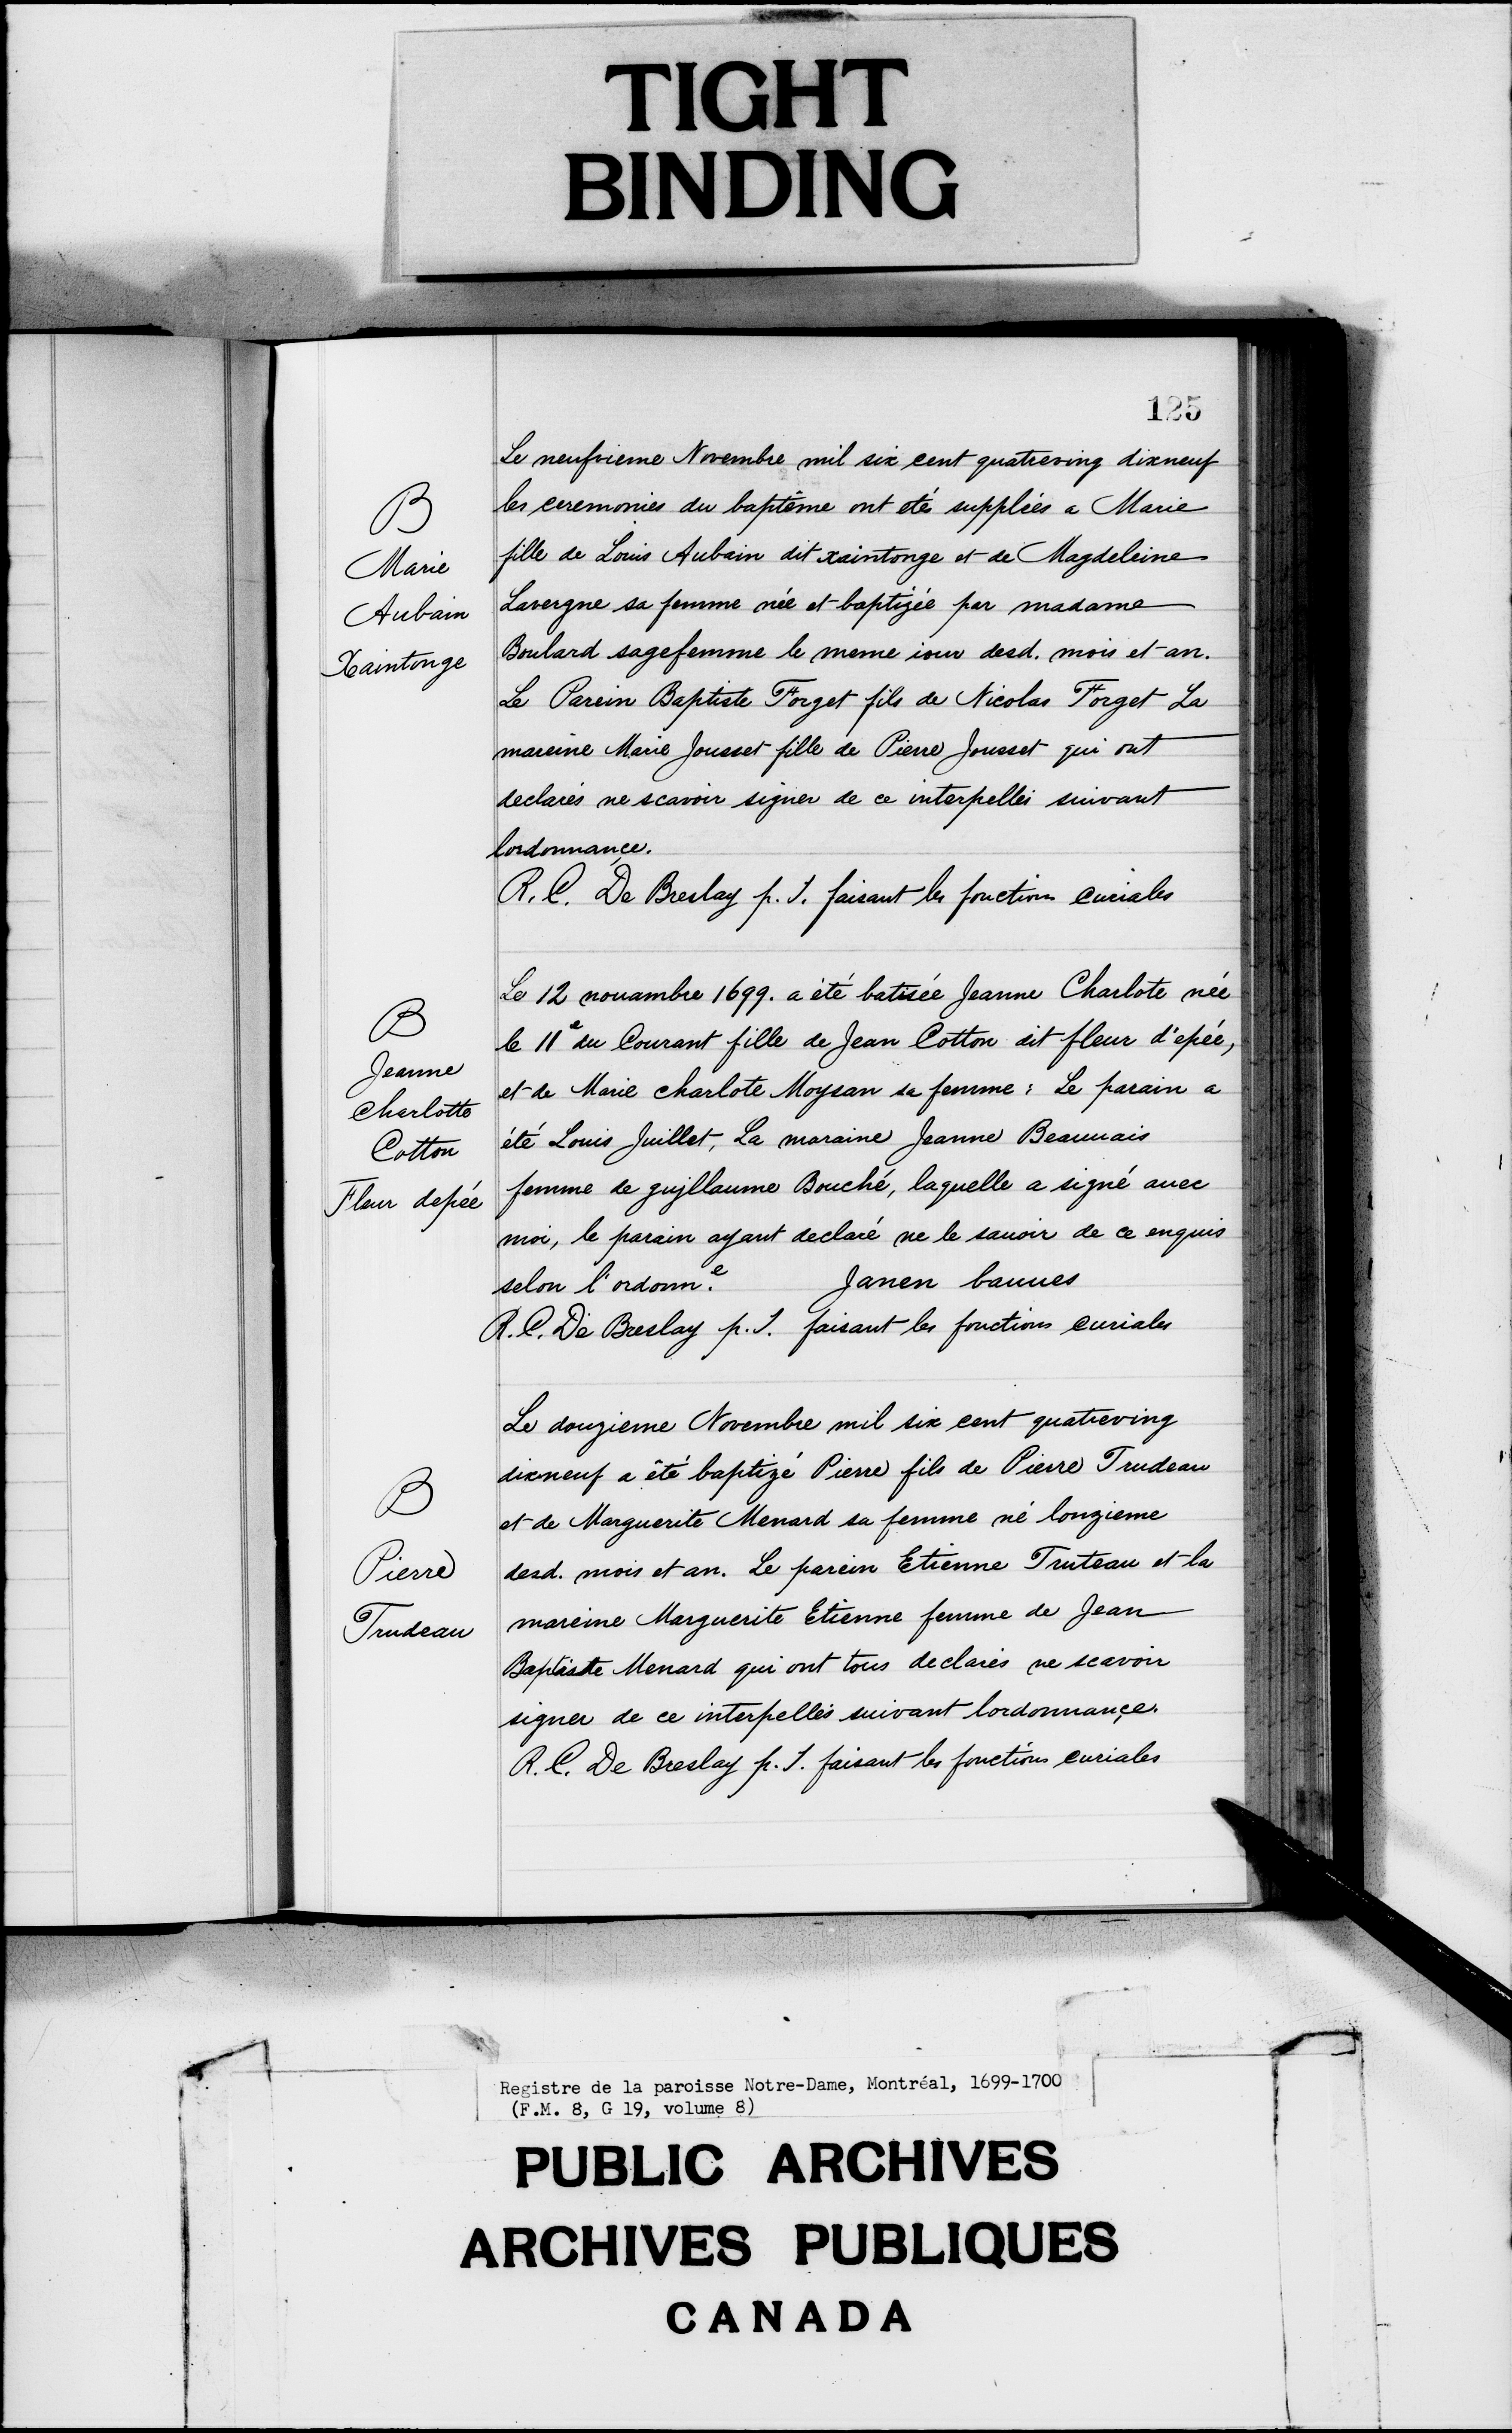 TIGHT
BINDING
125
Le neufvieme Novembre mil six cent quatreving dixneuf
B
les ceremonies du baptême ont etés suppleés a Marie
Marie
fille de Louis Aubain dit xaintonge et de Magdeleine
Aubain
Lavergne sa femme née et baptizée par madame
Xaintonge
Boulard sagefemme le meme iour desd. mois et an.
Le Parein Baptiste Forget fils de Nicolas Forget La
mareine Marie Jousset fille de Pierre Jousset qui ont
declarés ne scavoir signer de ce interpellés suivant
lordonnançe.
R. C. De Breslay p. J. faisant les fonctions curiales
Le 12 nouambre 1699. a été batisée Jeanne Charlote née
B
le 11e du Courant fille de Jean Cotton dit fleur d'epée,
Jeanne
et de Marie charlote Moysan sa femme : Le parain a
Charlotte
été Louis Juillet, La maraine Jeanne Beauuais
Cotton
femme de gujllaume Bouché, laquelle a signé auec
Fleur depée
moi, le parain ayant declaré ne le sauoir de ce enquis
selon l'ordonn.e Janen bauues
R. C. De Breslay p. J. faisant les fonctions curiales
Le douzieme Novembre mil six cent quatreving
dixneuf a été baptizé Pierre fils de Pierre Trudeau
B
et de Marguerite Menard sa femme né lonzieme
Pierre
desd. mois et an. Le parein Etienne Truteau et la
Trudeau
mareine Marguerite Etienne femme de Jean
Baptiste Menard qui ont tous declarés ne scavoir
signer de ce interpellés suivant lordonnançe.
R. C. De Breslay p. J. faisant les fonctions curiales
Registre de la paroisse Notre-Dame, Montréal, 1699-1700
(F.M. 8, G 19, volume 8)
PUBLIC ARCHIVES
ARCHIVES PUBLIQUES
CANADA